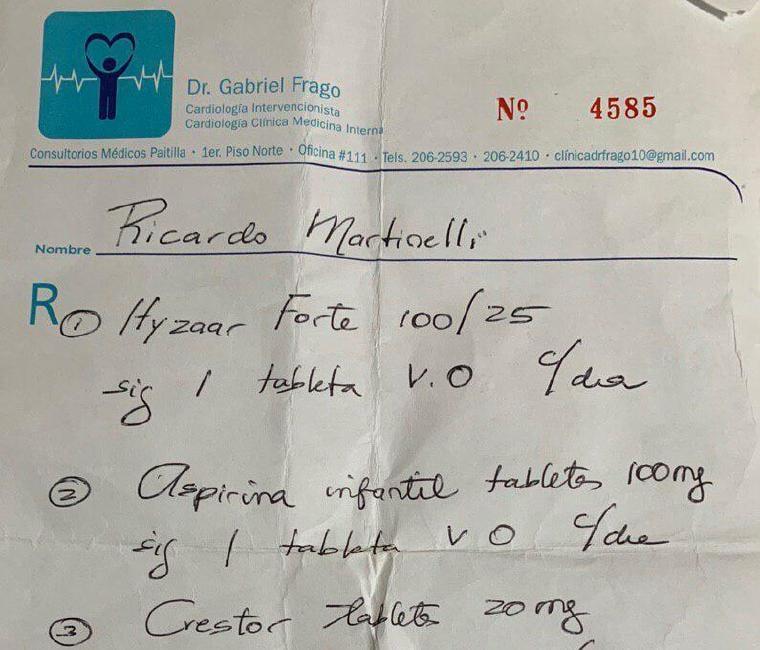 Dr. Gabriel Frago
Cardiología Intervencionista
Cardiología Clínica Medicina Interna
Nº 4585
Consultorios Médicos Paitilla · 1er. Piso Norte · Oficina #111 · Tels. 206-2593 · 206-2410 · clínicadrfrago10@gmail.com
Nombre Ricardo Martinelli
R ① Hyzaar Forte 100/25
sig 1 tableta V.O c/dia
② Aspirina infantil tabletas 100mg
sig 1 tableta V O c/dia
③ Crestor tabletas 20 mg